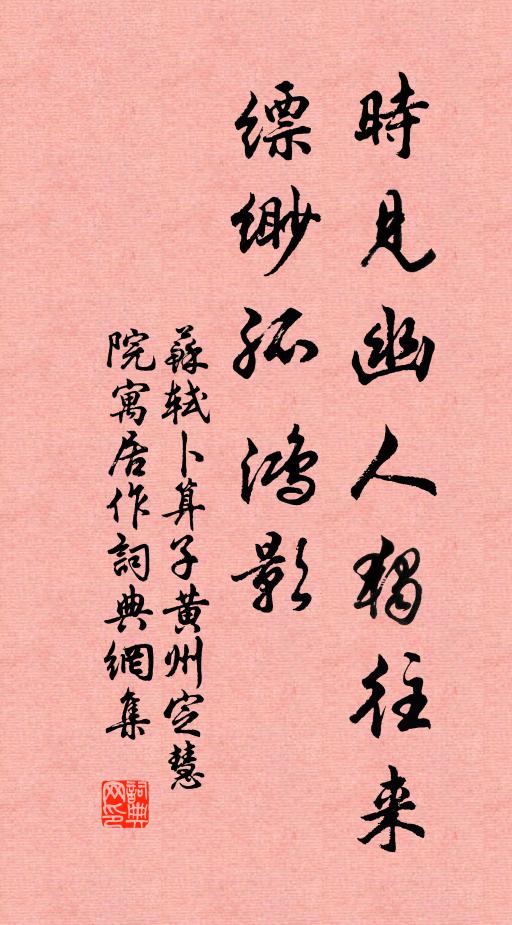 時見幽人獨往来
缥缈孤鴻影
蘇軾卜算子黄州定慧
院寓居作詞典網集
詞典
网印